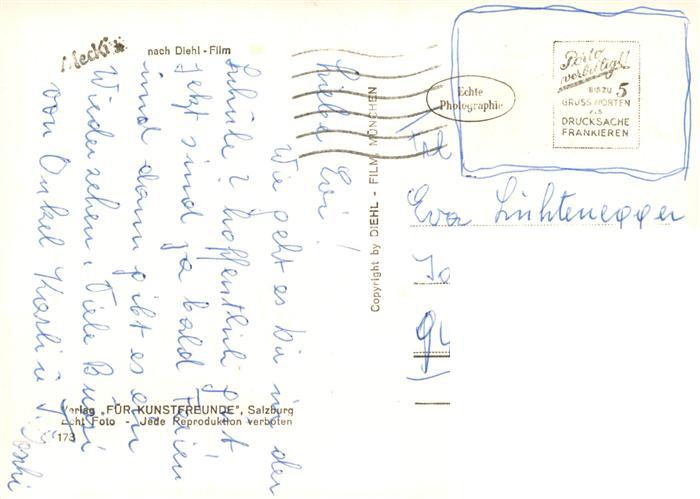 Mecki
nach Diehl-Film
Liebe Evi!
Wie geht es Dir in der
Schule? Hoffentlich gut
jetzt sind ja bald Ferien
und dann gibt es ein
Wiedersehen. Viele Bussi
von Onkel Karli u. T.
Copyright by DIEHL - FILM, MÜNCHEN
Echte
Photographie
Porto
verbilligt!
BIS ZU 5
GRUSSWORTEN
ALS
DRUCKSACHE
FRANKIEREN
Eva Lichtenegger
Verlag „FÜR KUNSTFREUNDE", Salzburg
Echt Foto - Jede Reproduktion verboten
173